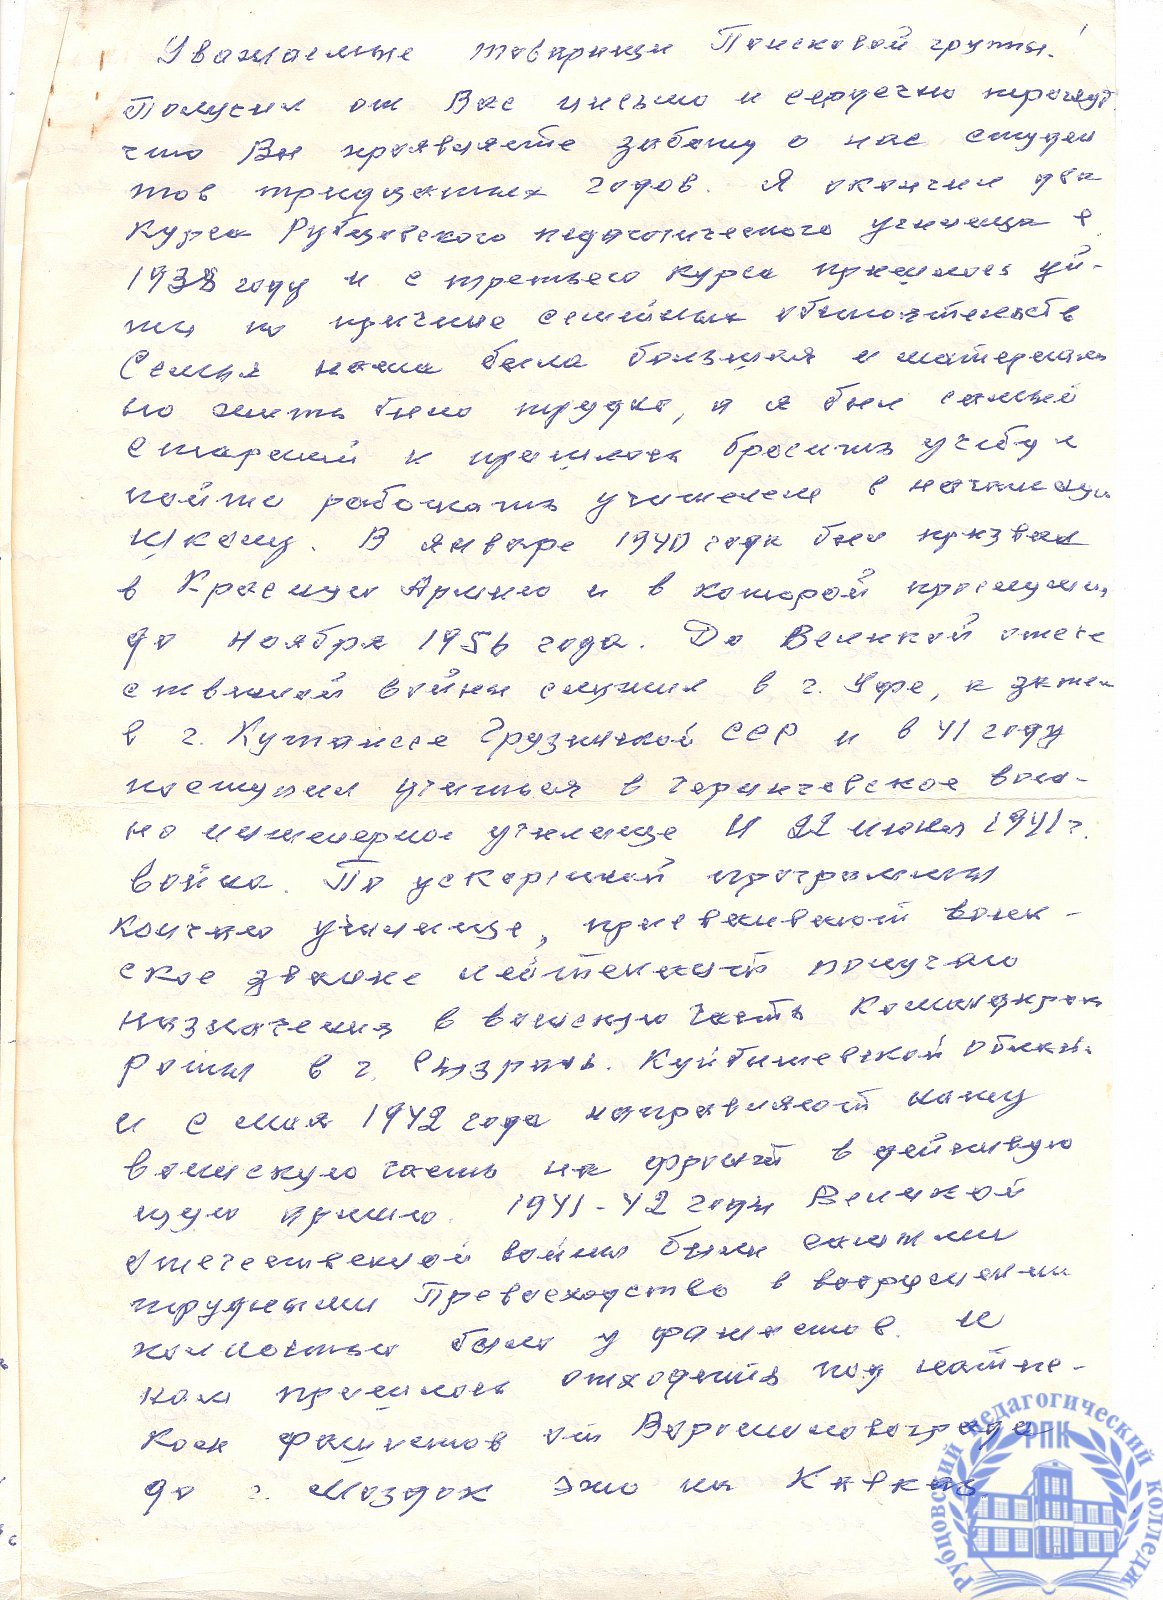 Уважаемые товарищи Поисковой группы!
Получил от Вас письмо и сердечно
что Вы проявляете заботу о нас студен
тов тридцатых годов. Я окончил два
курса Рубцовского педагогического училища в
1938 году и с третьего курса пришлось уй-
ти по причине семейных обстоятельств
Семья наша была большая и материаль
но жить было трудно, а я был самый
старший и пришлось бросить учёбу и
пойти работать учителем в начальную
школу. В январе 1940 года был призван
в Красную Армию и в которой прослужил
до ноября 1956 года. До Великой отече
ственной войны служил в г. Уфе, а затем
в г. Кутаиссе Грузинской ССР и в 41 году
поступил учиться в воен-
но инженерное училище И 22 июня 1941 г.
война. По ускоренной программы
кончаю училище, присваивают воин-
ское звание лейтенант получаю
назначения в воинскую часть командиром
роты в г. Сызрань. Куйбышевской област.
и с мая 1942 года направляют нашу
воинскую часть на фронт в действую
щую армию. 1941-42 годы Великой
отечественной войны были самыми
трудными Превосходство в вооружении
полностью было у фашистов. И
нам пришлось отходить под натис-
ком фашистов от Ворошиловограда
до г. Моздок это на Кавказ
Рубцовский педагогический колледж
РПК